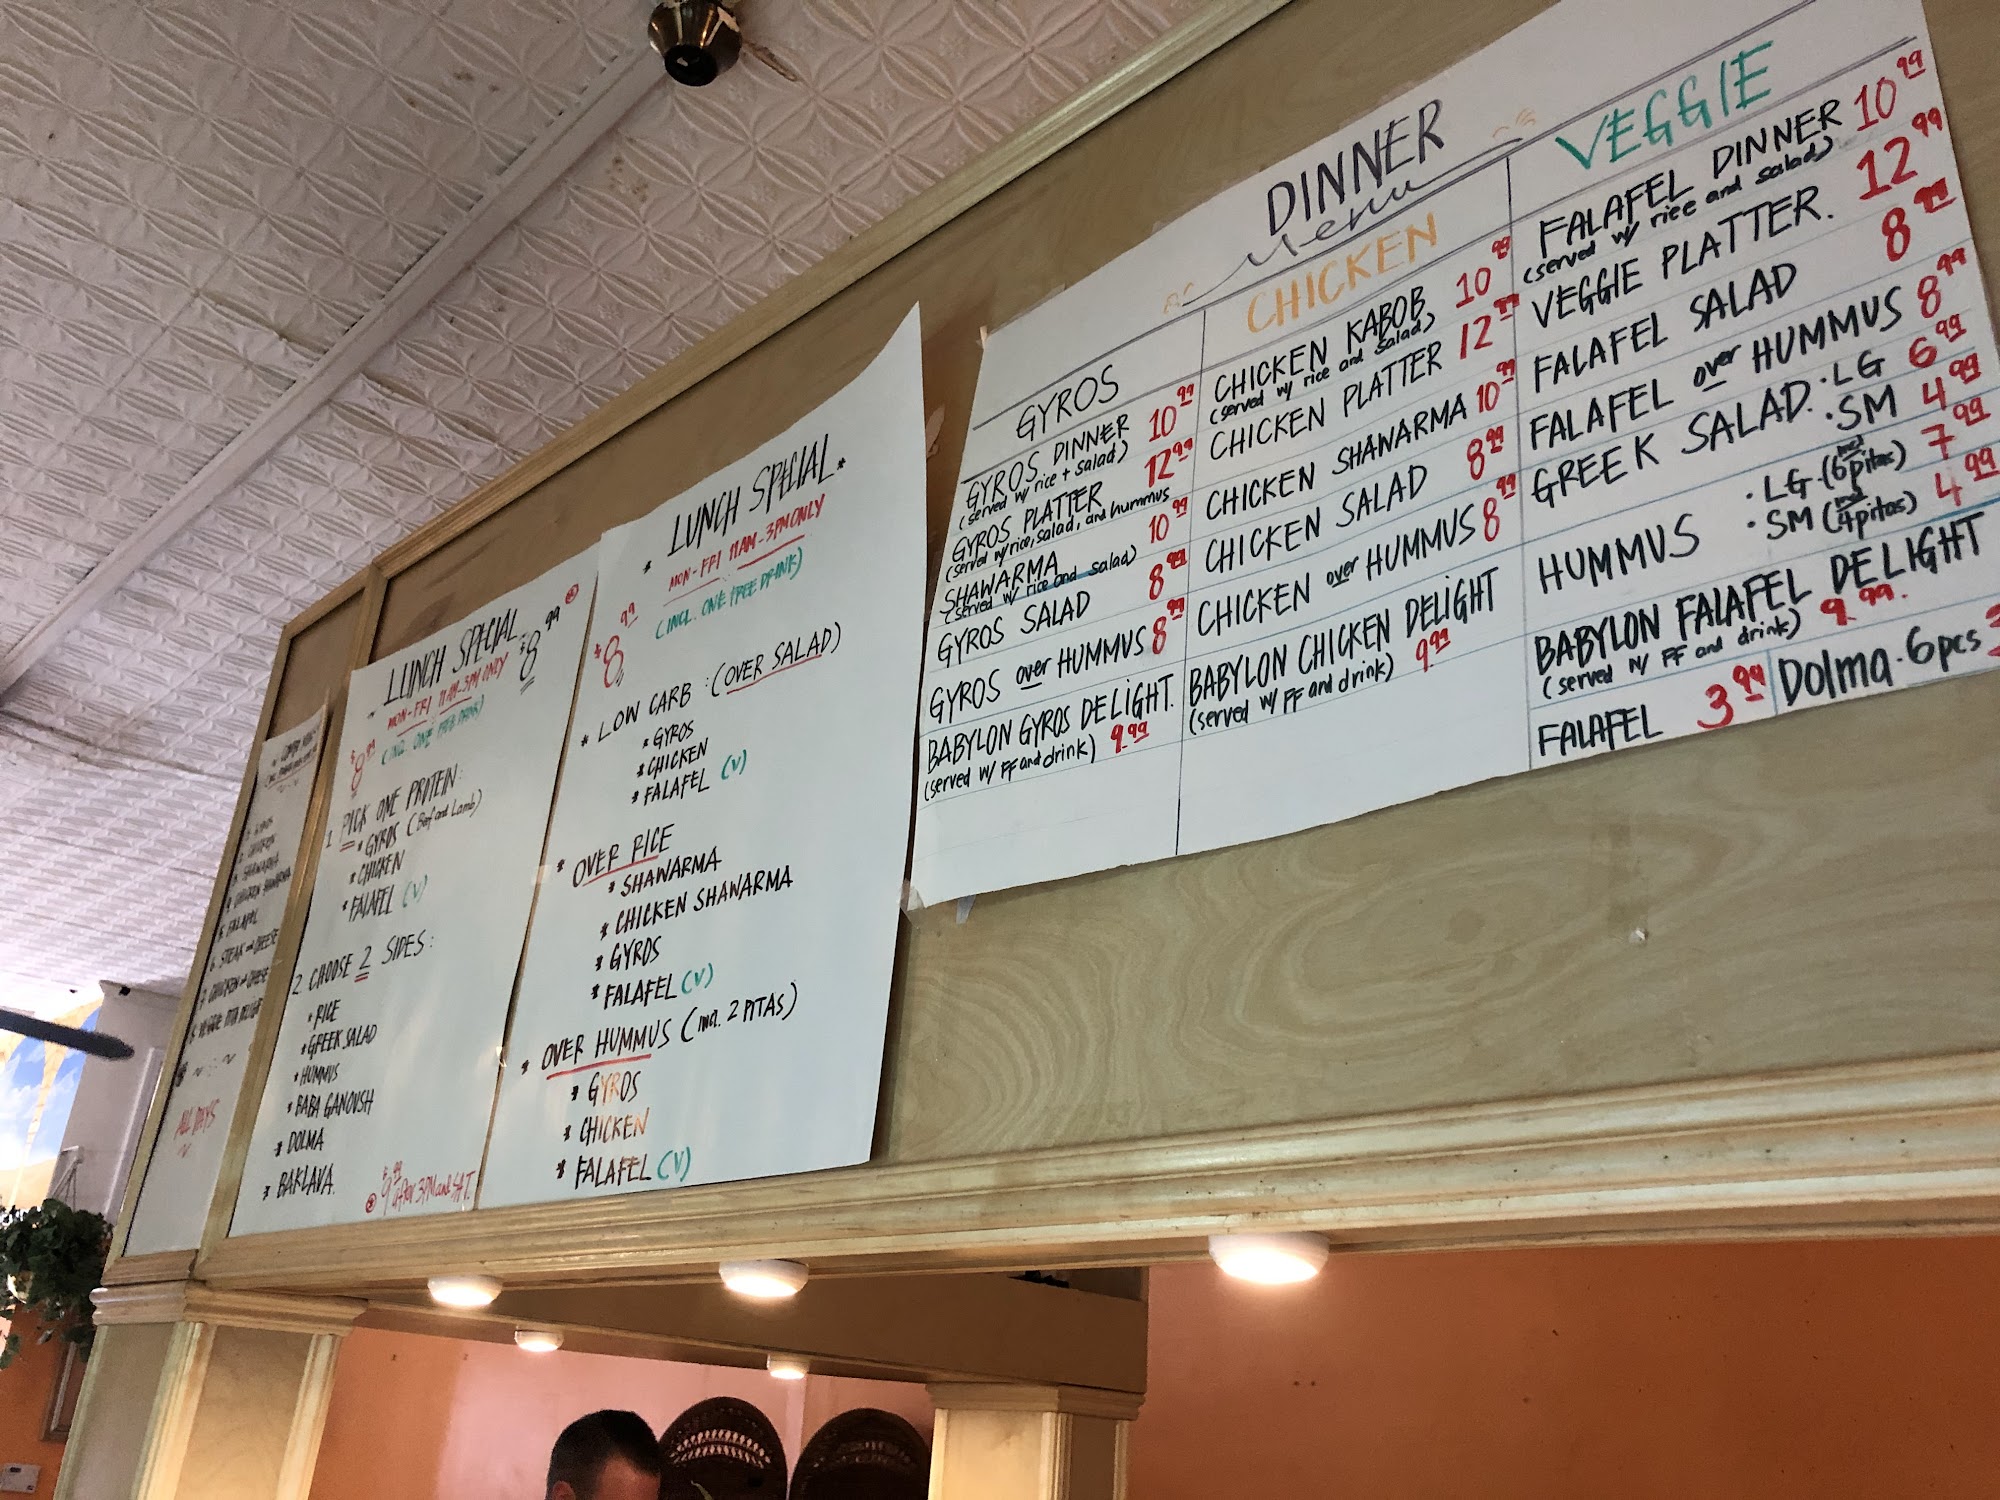 1. GYROS
2. CHICKEN
3. SHAWARMA
4. CHICKEN SHAWARMA
5. FALAFEL
6. STEAK and CHEESE
7. CHICKEN and CHEESE
8. VEGGIE PITA DELIGHT
ALL DAYS
LUNCH SPECIAL $8.99
MON-FRI 11AM-3PM ONLY
$8.99 (INCL. ONE FREE DRINK)
1. PICK ONE PROTEIN:
* GYROS (Beef and Lamb)
* CHICKEN
* FALAFEL (V)
2. CHOOSE 2 SIDES:
* RICE
* GREEK SALAD
* HUMMUS
* BABA GANOUSH
* DOLMA
* BAKLAVA.
$9.99
after 3PM and SAT.
* LUNCH SPECIAL *
MON-FRI 11AM-3PM ONLY
$8.99 (INCL. ONE FREE DRINK)
* LOW CARB: (OVER SALAD)
* GYROS
* CHICKEN
* FALAFEL (V)
* OVER RICE
* SHAWARMA
* CHICKEN SHAWARMA
* GYROS
* FALAFEL (V)
* OVER HUMMUS (incl. 2 PITAS)
* GYROS
* CHICKEN
* FALAFEL (V)
DINNER
Menu
GYROS
GYROS DINNER 10.99
(served w/ rice + salad)
GYROS PLATTER 12.99
(served w/ rice, salad, and hummus
SHAWARMA 10.99
(served w/ rice and salad)
GYROS SALAD 8.99
GYROS over HUMMUS 8.99
BABYLON GYROS DELIGHT.
(served w/ FF and drink) 9.99
CHICKEN
CHICKEN KABOB 10.99
(served w/ rice and salad)
CHICKEN PLATTER 12.99
CHICKEN SHAWARMA 10.99
CHICKEN SALAD 8.99
CHICKEN over HUMMUS 8.99
BABYLON CHICKEN DELIGHT
(served w/ FF and drink) 9.99
VEGGIE
FALAFEL DINNER 10.99
(served w/ rice and salad)
VEGGIE PLATTER. 12.99
FALAFEL SALAD 8.99
FALAFEL over HUMMUS 8.99
GREEK SALAD. • LG 6.99
• SM 4.99
HUMMUS • LG (incl 6 pitas) 7.99
• SM (incl 4 pitas) 4.99
BABYLON FALAFEL DELIGHT
(served w/ FF and drink) 9.99.
FALAFEL 3.99
Dolma. 6pcs